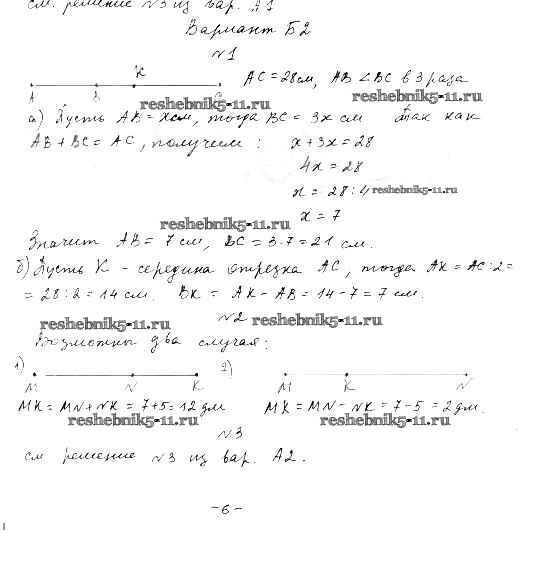 см. решение №3 из вар. А1
Вариант Б2
№1
K
AC = 28 см, AB < BC в 3 раза
A B C
reshebnik5-11.ru reshebnik5-11.ru
а) Пусть AB = x см, тогда BC = 3x см Так как
AB + BC = AC, получим: x + 3x = 28
4x = 28
x = 28 : 4 reshebnik5-11.ru
x = 7
reshebnik5-11.ru
Значит AB = 7 см, BC = 3·7 = 21 см.
б) Пусть K - середина отрезка AC, тогда AK = AC : 2 =
= 28 : 2 = 14 см. BK = AK - AB = 14 - 7 = 7 см.
№2 reshebnik5-11.ru
reshebnik5-11.ru
Возможны два случая:
1) 2)
M N K M K N
MK = MN + NK = 7 + 5 = 12 дм MK = MN - NK = 7 - 5 = 2 дм.
reshebnik5-11.ru reshebnik5-11.ru
№3
см решение №3 из вар. А2.
- 6 -